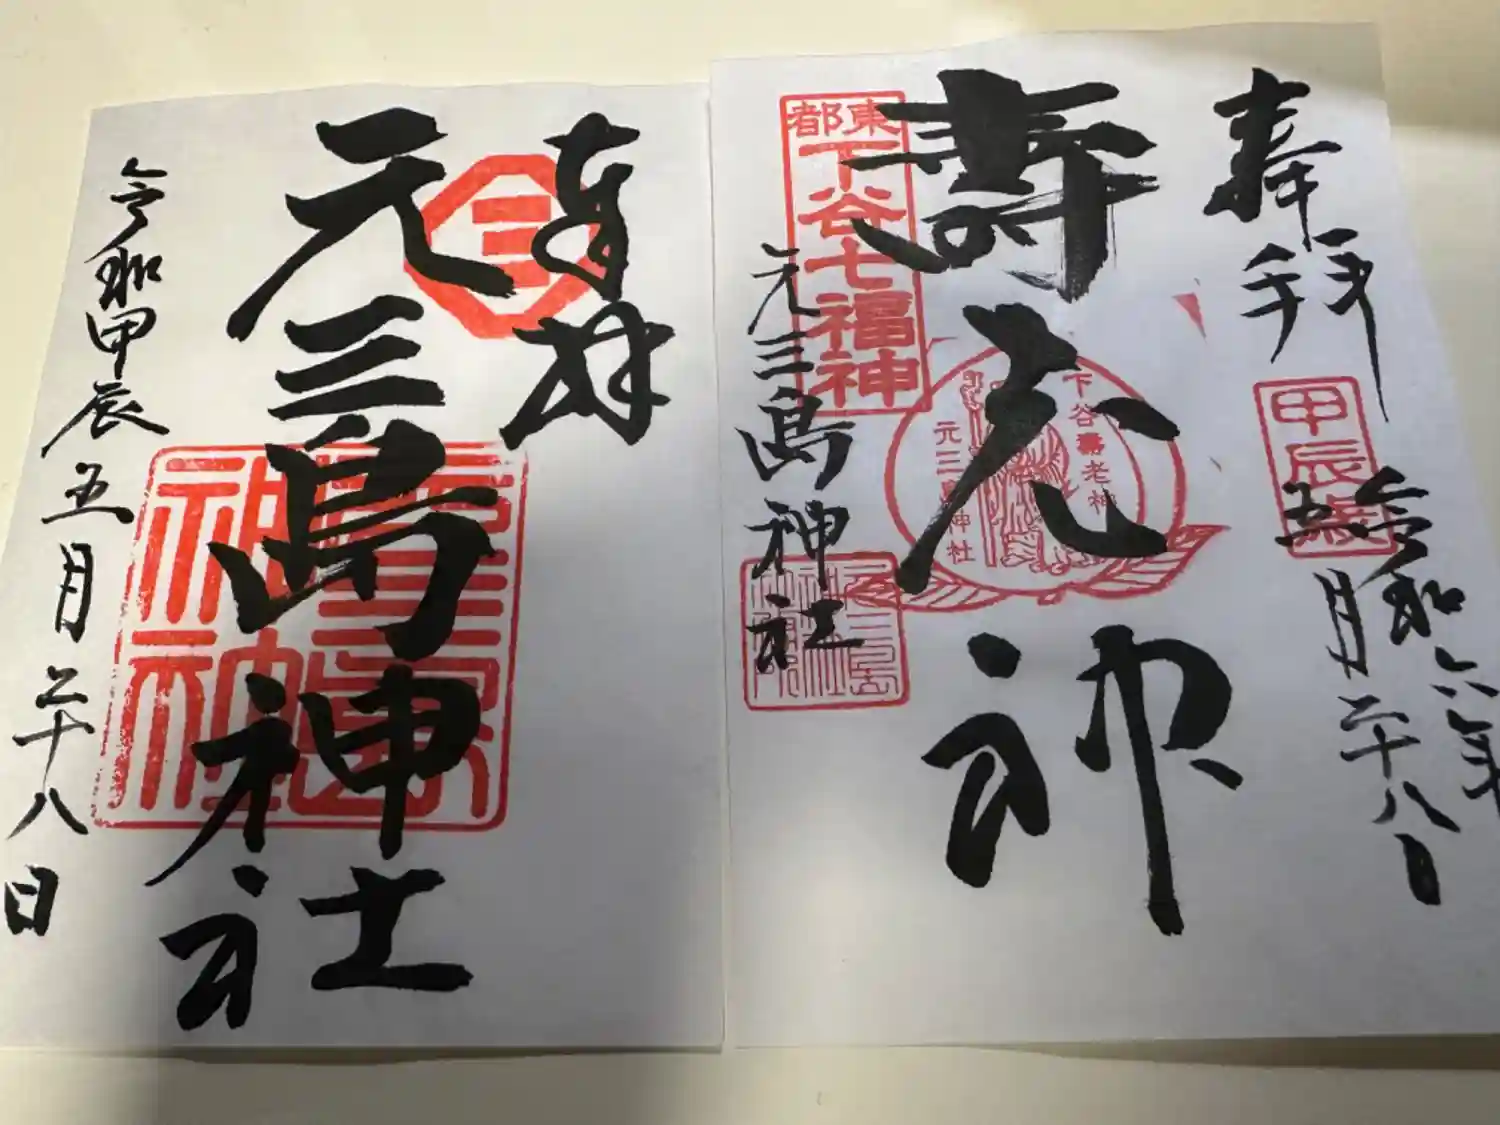 奉拝
甲辰歳
令和六年
五月二十八日
壽老神
東都
下谷七福神
下谷壽老神
元三島神社
元三島神社
奉拝
三
元三島神社
令和甲辰五月二十八日